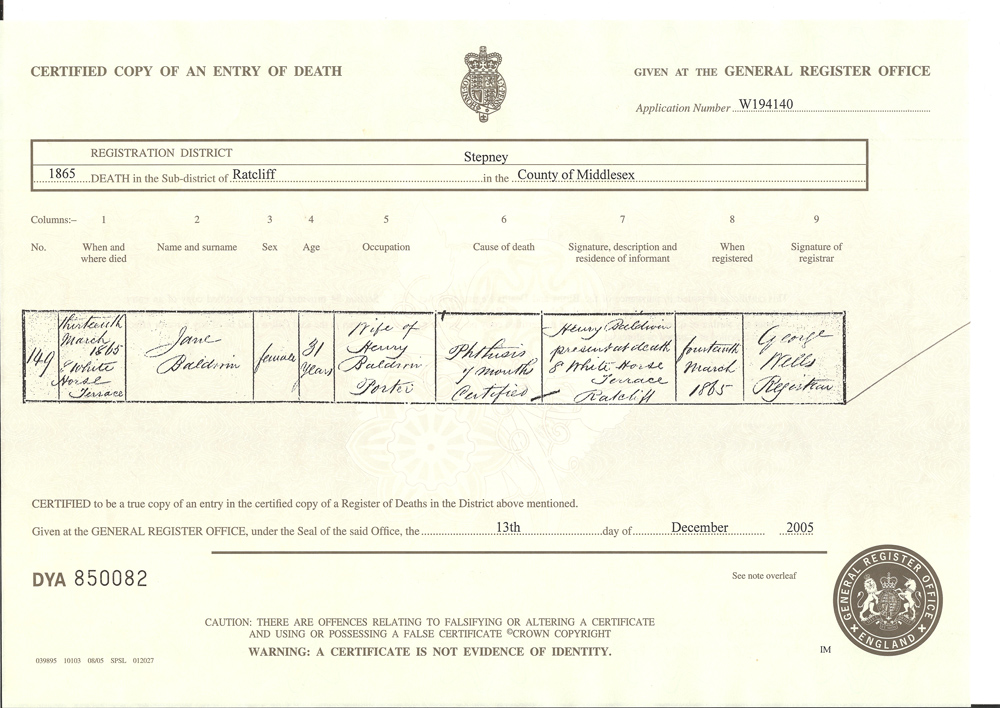 CERTIFIED COPY OF AN ENTRY OF DEATH
GIVEN AT THE GENERAL REGISTER OFFICE
Application Number W194140
REGISTRATION DISTRICT Stepney
1865 DEATH in the Sub-district of Ratcliff in the County of Middlesex
Columns:– 1 2 3 4 5 6 7 8 9
No. When and where died Name and surname Sex Age Occupation Cause of death Signature, description and residence of informant When registered Signature of registrar
149
thirteenth
March
1865
8 White
Horse
Terrace
Jane
Baldwin
female
31
Years
Wife of
Henry
Baldwin
Porter
Phthisis
7 months
Certified
Henry Baldwin
present at death
8 White Horse
Terrace
Ratcliff
fourteenth
March
1865
George
Wells
Registrar
CERTIFIED to be a true copy of an entry in the certified copy of a Register of Deaths in the District above mentioned.
Given at the GENERAL REGISTER OFFICE, under the Seal of the said Office, the 13th day of December 2005
DYA 850082
See note overleaf
GENERAL REGISTER OFFICE
ENGLAND
CAUTION: THERE ARE OFFENCES RELATING TO FALSIFYING OR ALTERING A CERTIFICATE
AND USING OR POSSESSING A FALSE CERTIFICATE ©CROWN COPYRIGHT
WARNING: A CERTIFICATE IS NOT EVIDENCE OF IDENTITY.
039895 10103 08/05 SPSL 012027
IM